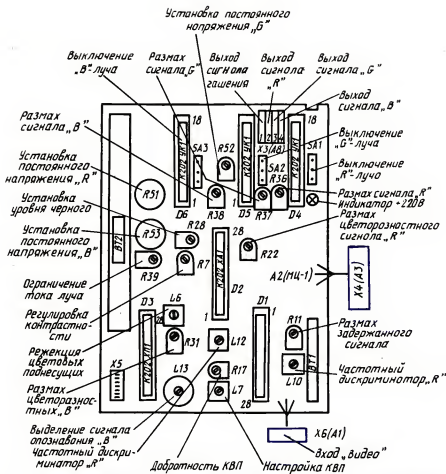 Установка постоянного
напряжения „G"
Выключение
„В"-луча
Размах
сигнала„G"
Выход
сигнала
гашения
Выход
сигнала
„R"
Выход
сигнала „G"
Выход
сигнала „В"
Размах
сигнала „В"
Установка
постоянного
напряжения „R"
Установка
уровня черного
Установка
постоянного
напряжения „В"
Ограничение
тока луча
Регулировка
контрастно-
сти
Режекция
цветовых
поднесущих
Размах
цветоразнос-
тных „В"
Выделение сигнала
опознавания „В"
Частотный дискри-
минатор „R"
Добротность КВП
Настройка КВП
Выключение
„G"-луча
Выключение
„R"-луча
Размах сигнала „R"
Индикатор +220В
Размах
цветоразностного
сигнала „R"
А2(МЦ-1)
X4(А3)
Размах
задержанного
сигнала
Частотный
дискриминатор „R"
X6(А1)
Вход „видео"
18
К202 УК1
1
D6
SA3
R52
R38
18
К202 УК1
1
D5
1 2 3 4
X3(А8)
SA2
R36
R37
18
К202 УК1
1
D4
SA1
R51
R53
R28
R39
R7
28
К202 ХА1
1
D2
R22
ВТ2
L6
D3
28
К202 ХП1
1
R31
L12
R17
L13
L7
D1
1
28
R11
L10
ВТ1
X5